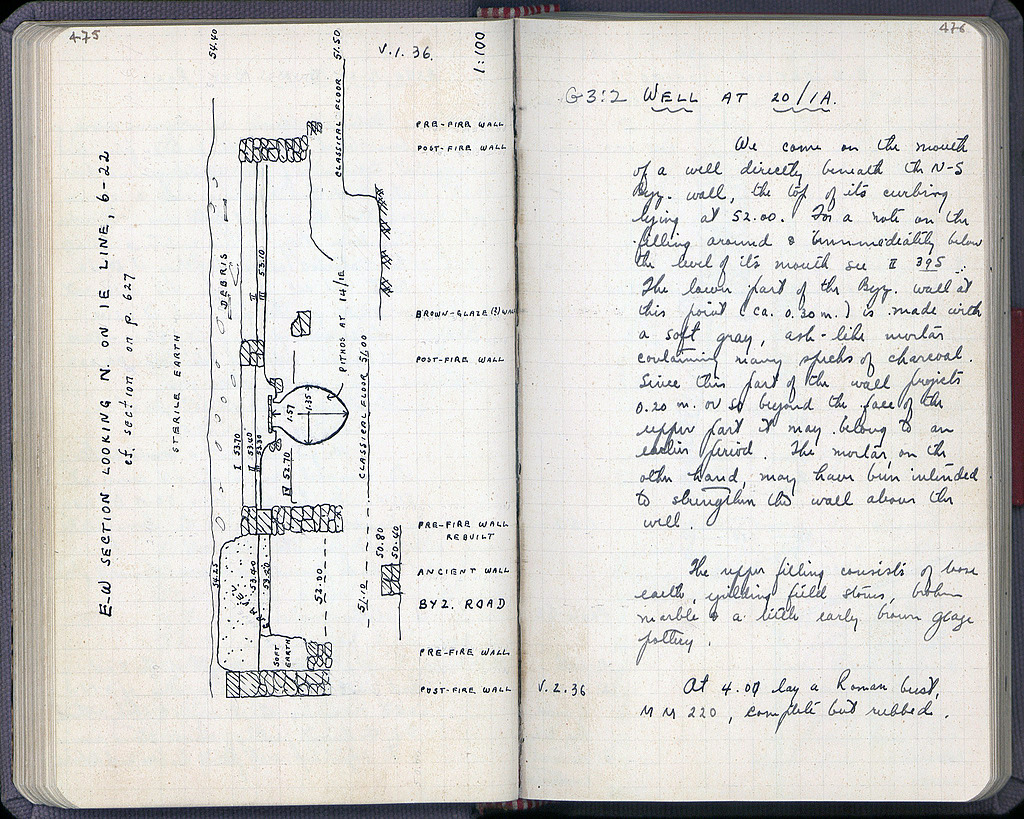 475
V.1.36.
1:100
E-W SECTION LOOKING N. ON IE LINE, 6-22
cf. section on p. 627
STERILE EARTH
54.40
51.50
DEBRIS
CLASSICAL FLOOR
PRE-FIRE WALL
POST-FIRE WALL
II 53.10
III
PITHOS AT 14/IE
BROWN-GLAZE (?) WALL
POST-FIRE WALL
CLASSICAL FLOOR 51.00
1.57
1.35
I 53.70
II 53.40
III 53.30
IV 52.70
PRE-FIRE WALL
REBUILT
50.80
50.40
ANCIENT WALL
54.25
53.40
53.20
52.00
51.10
BYZ. ROAD
SOFT
EARTH
PRE-FIRE WALL
POST-FIRE WALL
476
G3:2 WELL AT 20/IA.
We come on the mouth
of a well directly beneath the N-S
Byz. wall, the top of its curbing
lying at 52.00. For a note on the
filling around & immediately below
the level of its mouth see II 395.
The lower part of the Byz. wall at
this point (ca. 0.30 m.) is made with
a soft gray, ash-like mortar
containing many specks of charcoal.
Since this part of the wall projects
0.20 m. or so beyond the face of the
upper part it may belong to an
earlier period. The mortar, on the
other hand, may have been intended
to strengthen the wall above the
well.
The upper filling consists of loose
earth, yielding field stones, broken
marble & a little early brown glaze
pottery.
V.2.36
At 4.00 lay a Roman bust,
MM 220, complete but rubbed.